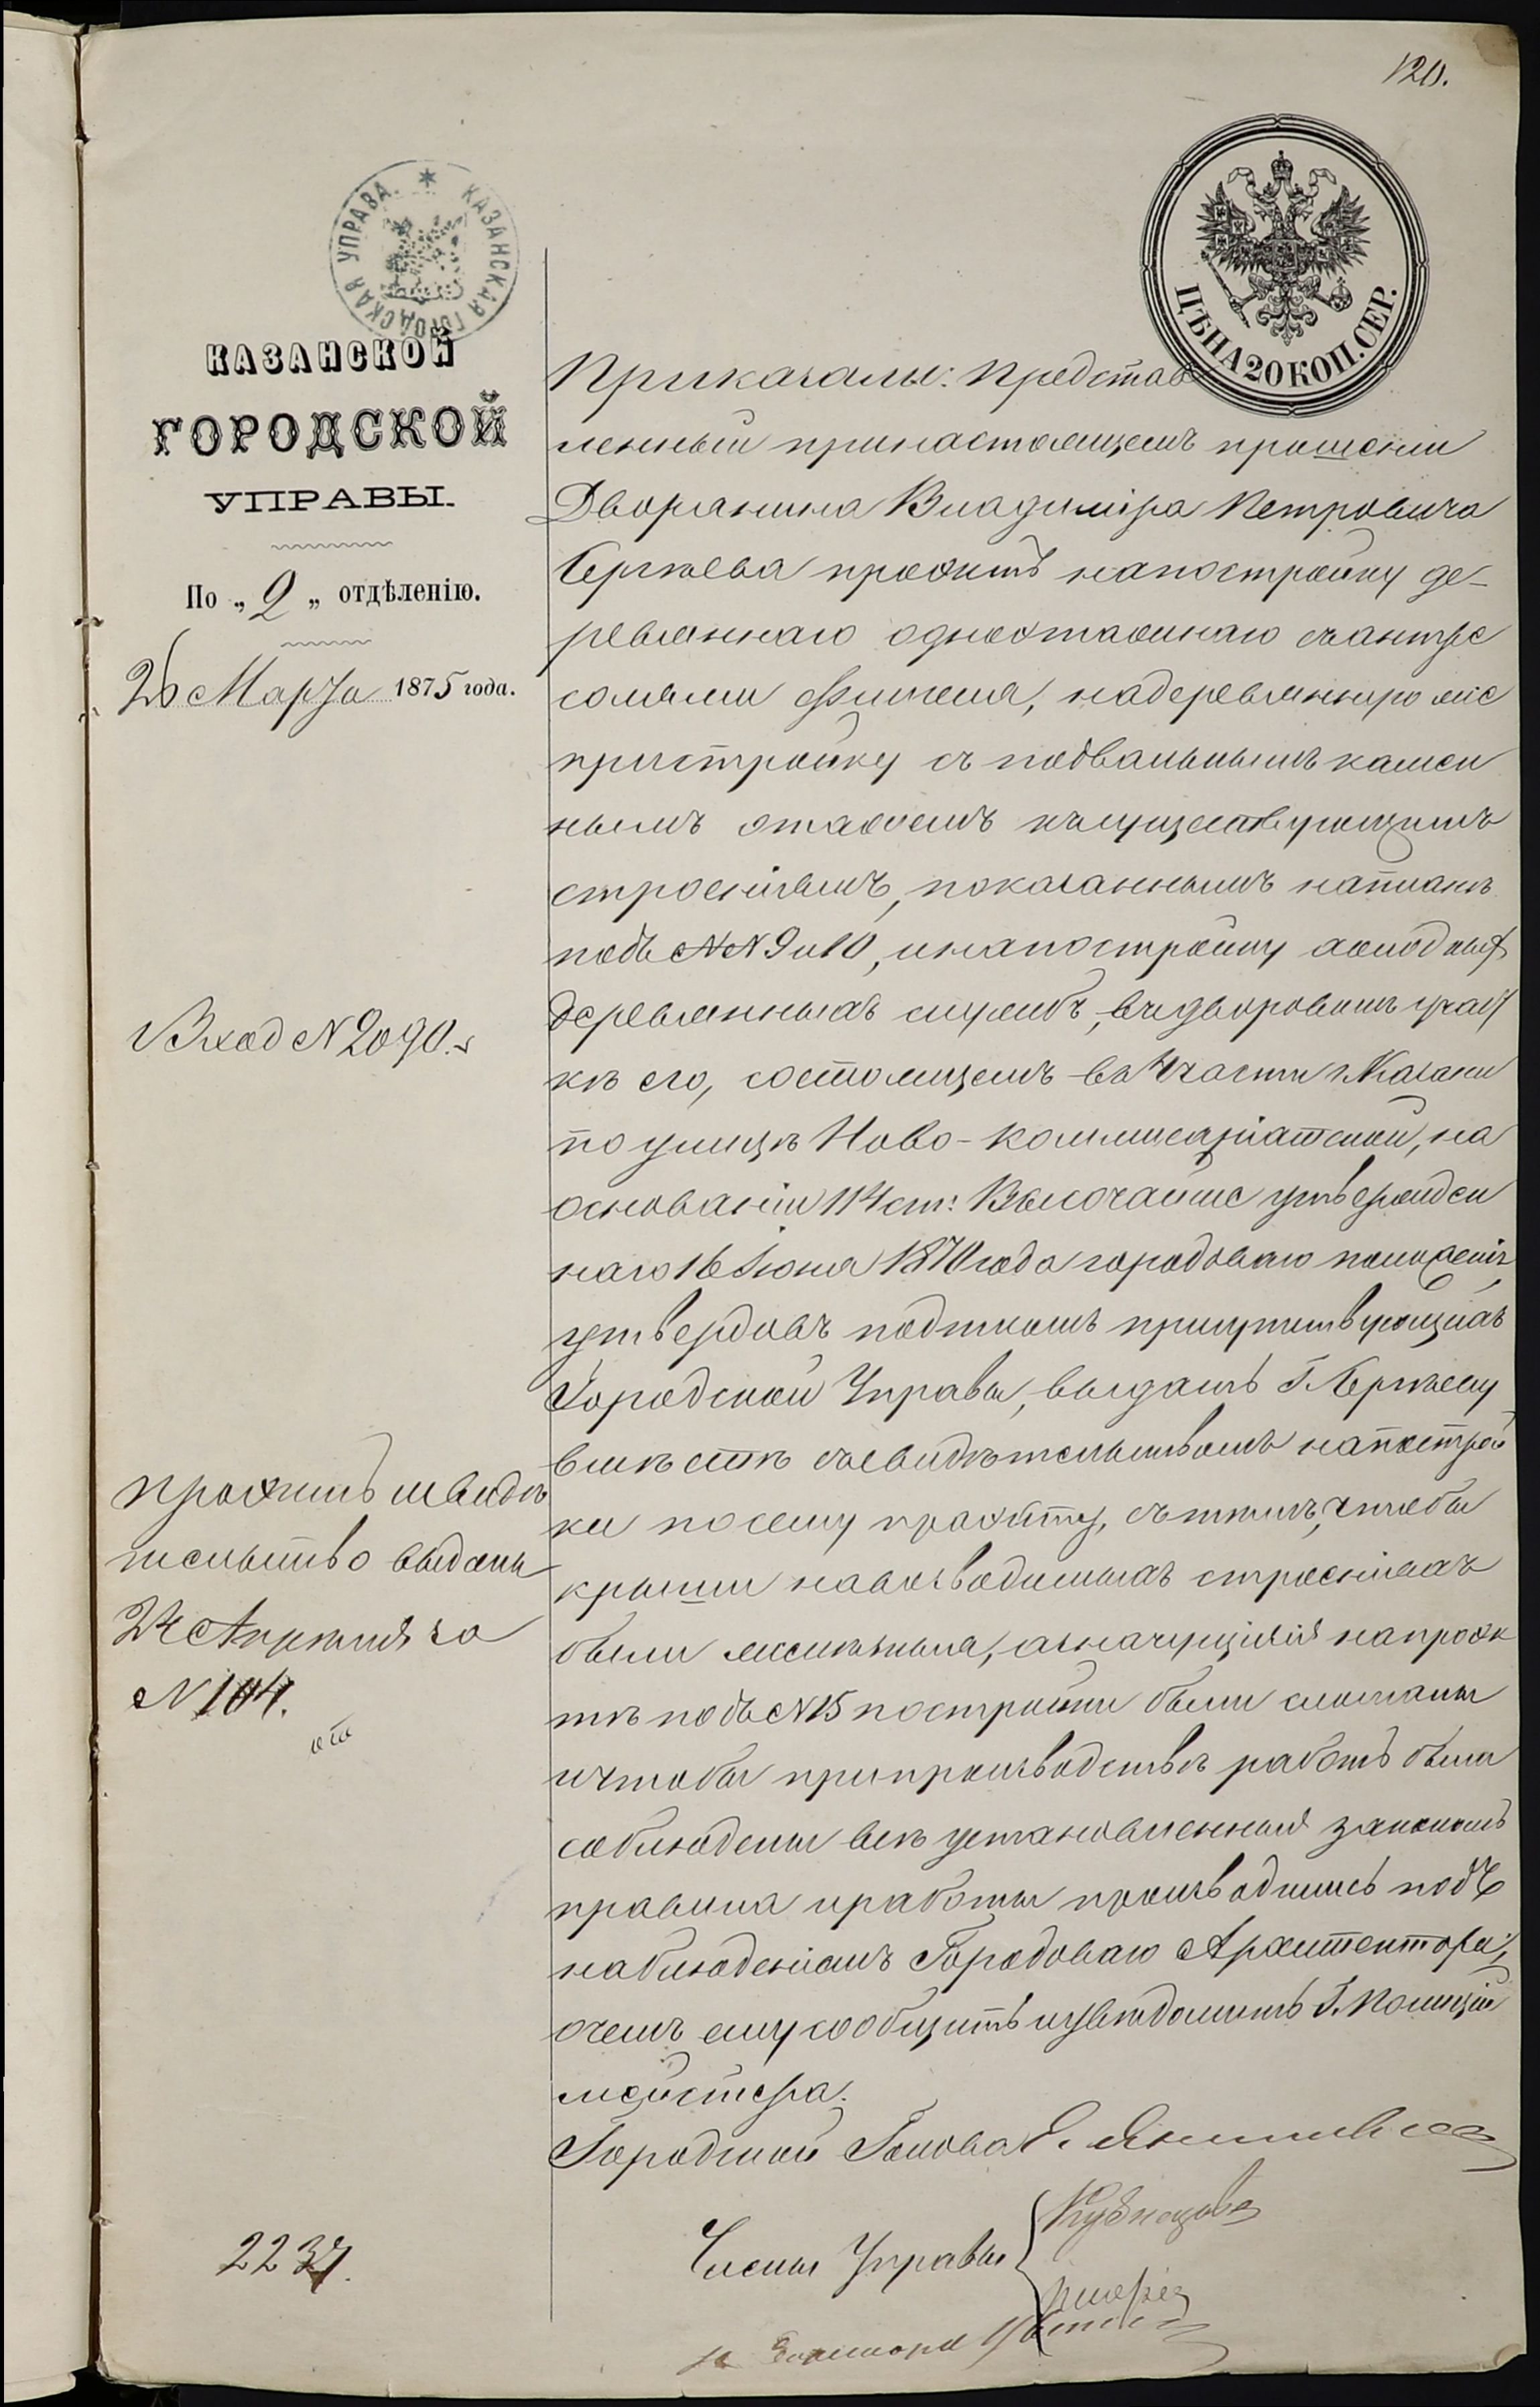 120.
КАЗАНСКАЯ ГОРОДСКАЯ УПРАВА.
ЦѢНА 20 КОП. СЕР.
КАЗАНСКОЙ
ГОРОДСКОЙ
УПРАВЫ.
По „2„ отдѣленію.
26 Марта 1875 года.
Вход N 2090.
проэктъ и свидѣ
тельство выданы
24 Апрѣля за
N 104.
2237.
Приказали: Представ
ленный принастоящемъ прошеніи
Дворянина Владиміра Петровича
проэктъ напостройку де-
ревяннаго одноэтажнаго съантре
солями флигеля, надеревянную же
пристройку съ подвальнымъ камен
нымъ этажемъ къ существующимъ
строеніямъ, показаннымъ напланѣ
подъ NN 9 и 10, инапостройку холодныхъ
деревянныхъ службъ, въ дворовомъ участ
кѣ его, состоящемъ въ 4 части г. Казани
по улицѣ Ново-Коммисаріатской, на
основаніи 114 ст: Высочайше утвержден
наго 16 Іюня 1870 года городоваго положенія,
утвердивъ подписомъ присутствующихъ
Городской Управы, выдать Г.
вмѣстѣ съ свидѣтельствомъ напострой
ки посему проэкту, съ тѣмъ, чтобы
крыши навозводимыхъ строеніяхъ
были желѣзныя, азначущіяся напроэк
тѣ подъ N 15 постройки были сломаны
ичтобы припроизводствѣ работъ были
соблюдены всѣ установленныя закономъ
правила иработы производились подъ
наблюденіемъ Городоваго Архитектора;
очемъ ему сообщить иувѣдомить Г. Полиціи
мейстера.
Городской Голова Е. Янишевскій
Члены Управы
Кузнецовъ